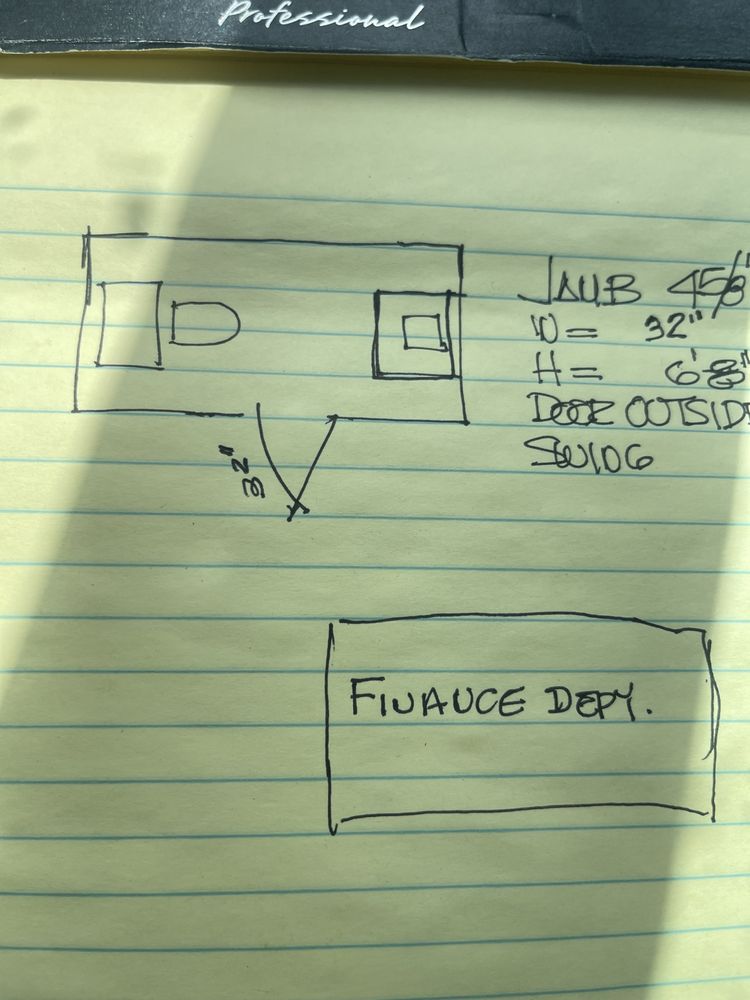 Professional
JAMB 4 5/8"
W = 32"
H = 6'8"
DOOR OUTSIDE
SWING
32"
FINANCE DEPT.